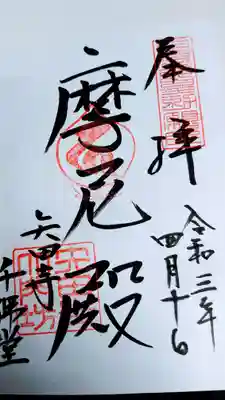 奉拝
令和三年
四月十日
摩尼殿
矢田寺
千佛堂